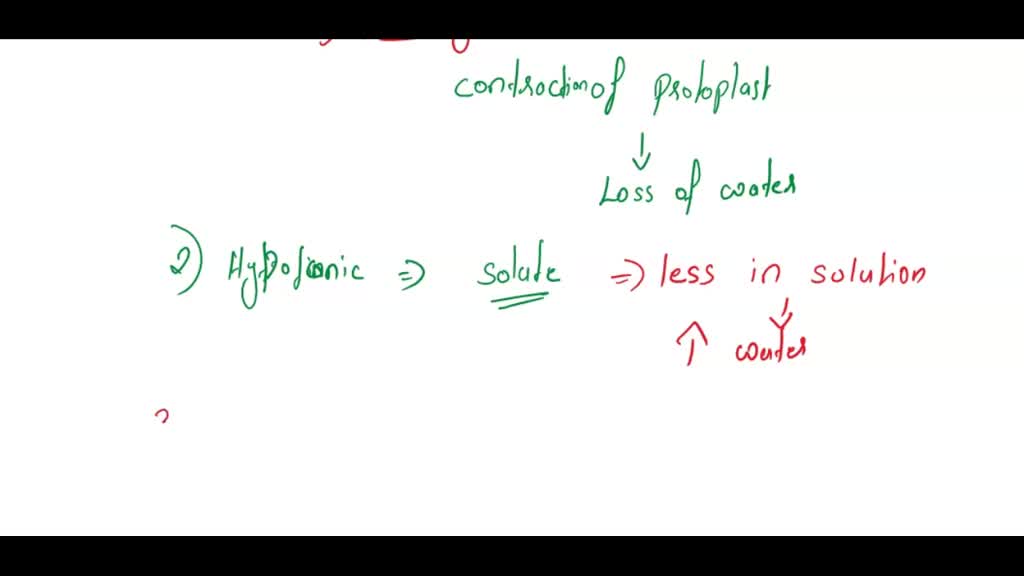 contraction of protoplast
↓
Loss of water
2) Hypotonic ⇒ solute ⇒ less in solution
↓
↑ water